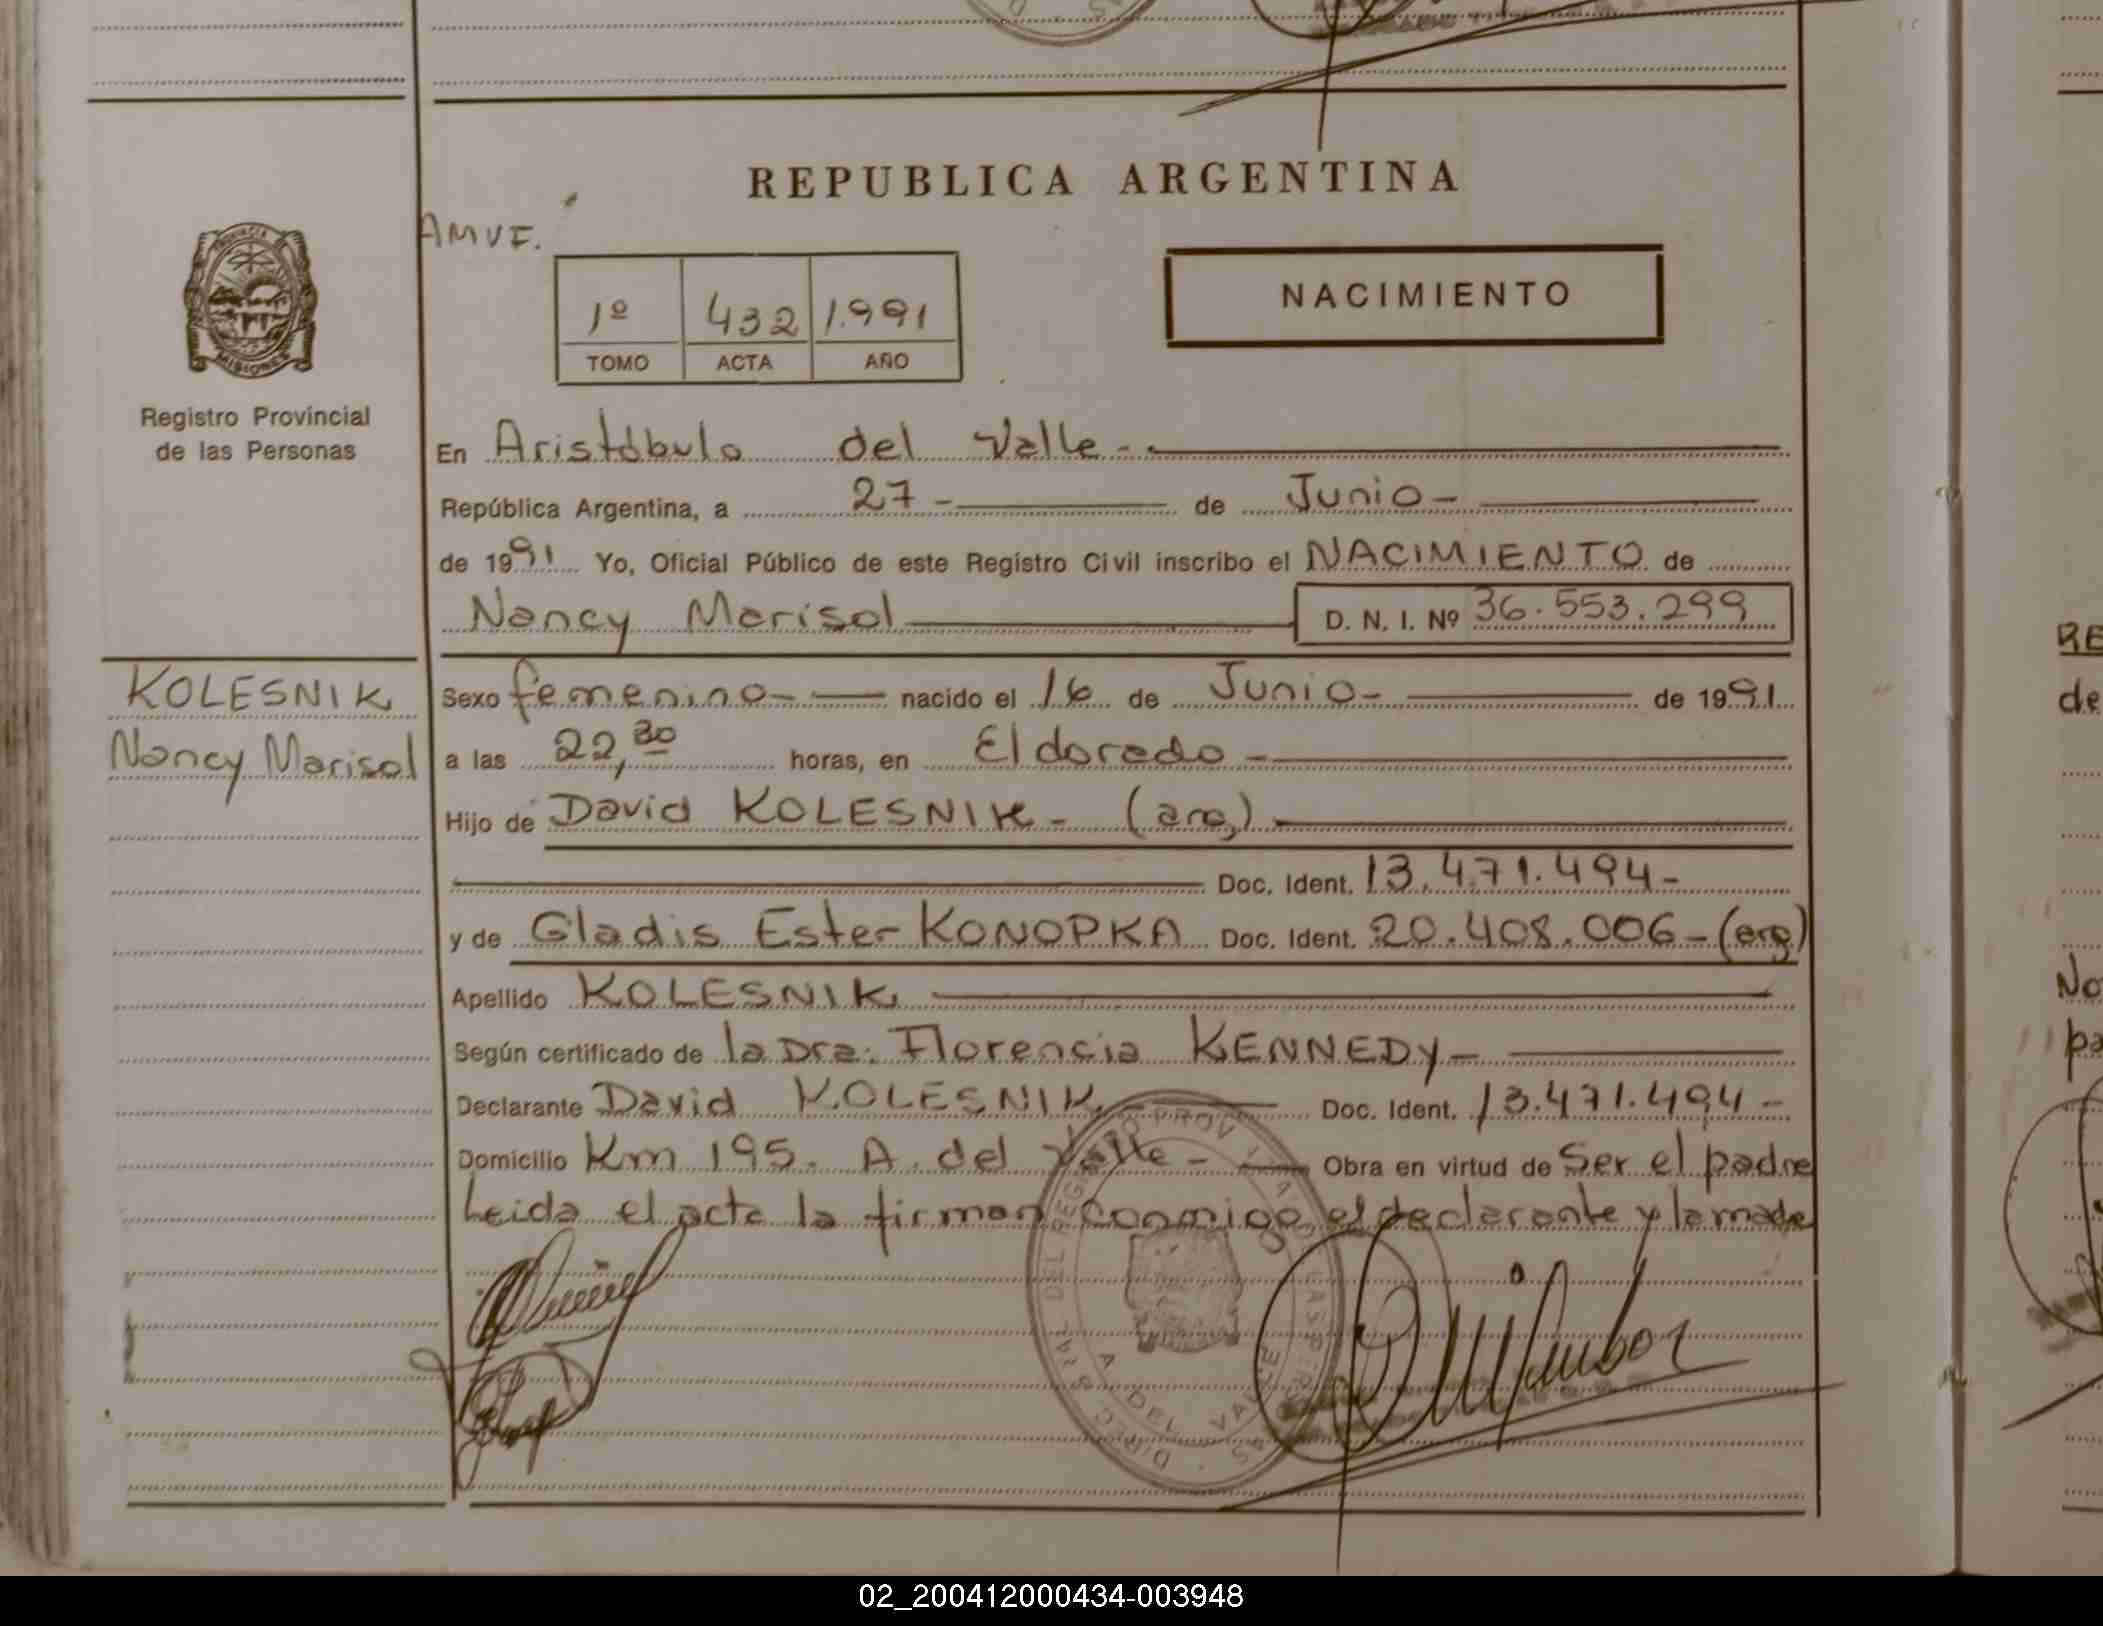 REPUBLICA ARGENTINA
AMVE.
1º 432 1.991
TOMO ACTA AÑO
NACIMIENTO
PROVINCIA DE
MISIONES
Registro Provincial
de las Personas
En Aristóbulo del Valle -
República Argentina, a 27 - de Junio -
de 1991 Yo, Oficial Público de este Registro Civil inscribo el NACIMIENTO de
Nancy Marisol D. N. I. Nº 36.553.299
KOLESNIK
Nancy Marisol
Sexo femenino - nacido el 16 de Junio - de 1991
a las 22,30 horas, en Eldorado -
Hijo de David KOLESNIK - (arg)
Doc. Ident. 13.471.494 -
y de Gladis Ester KONOPKA Doc. Ident. 20.408.006 - (arg)
Apellido KOLESNIK
Según certificado de la Dra. Florencia KENNEDY -
Declarante David KOLESNIK - Doc. Ident. 13.471.494 -
Domicilio Km 195. A. del Valle - Obra en virtud de Ser el padre
Leida el acta la firman conmigo el declarante y la madre
A DEL VALLE
RE
de
No
pa
02_200412000434-003948